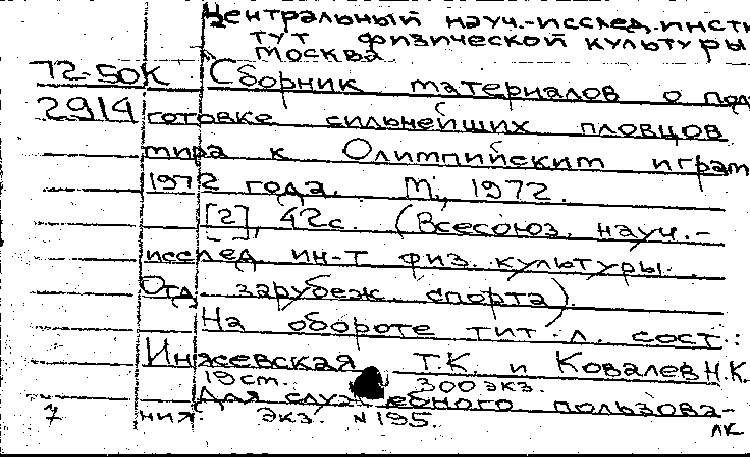 Центральный науч.-исслед.инсти
тут физической культуры
Москва.
72-50К Сборник материалов о под
2914 готовке сильнейших пловцов
мира к Олимпийским играм
1972 года. М., 1972.
[2], 42с. (Всесоюз. науч.-
исслед ин-т физ. культуры.
Отд зарубеж. спорта).
На обороте тит. л. сост.:
Инжевская Т.К. и Ковалев Н.К.
19 cm. 300 экз.
Для служебного пользова-
7 ния. экз. N 195.
лк